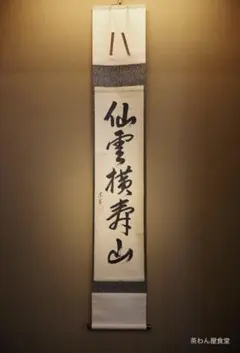 仙雲横寿山
茶わん屋食堂